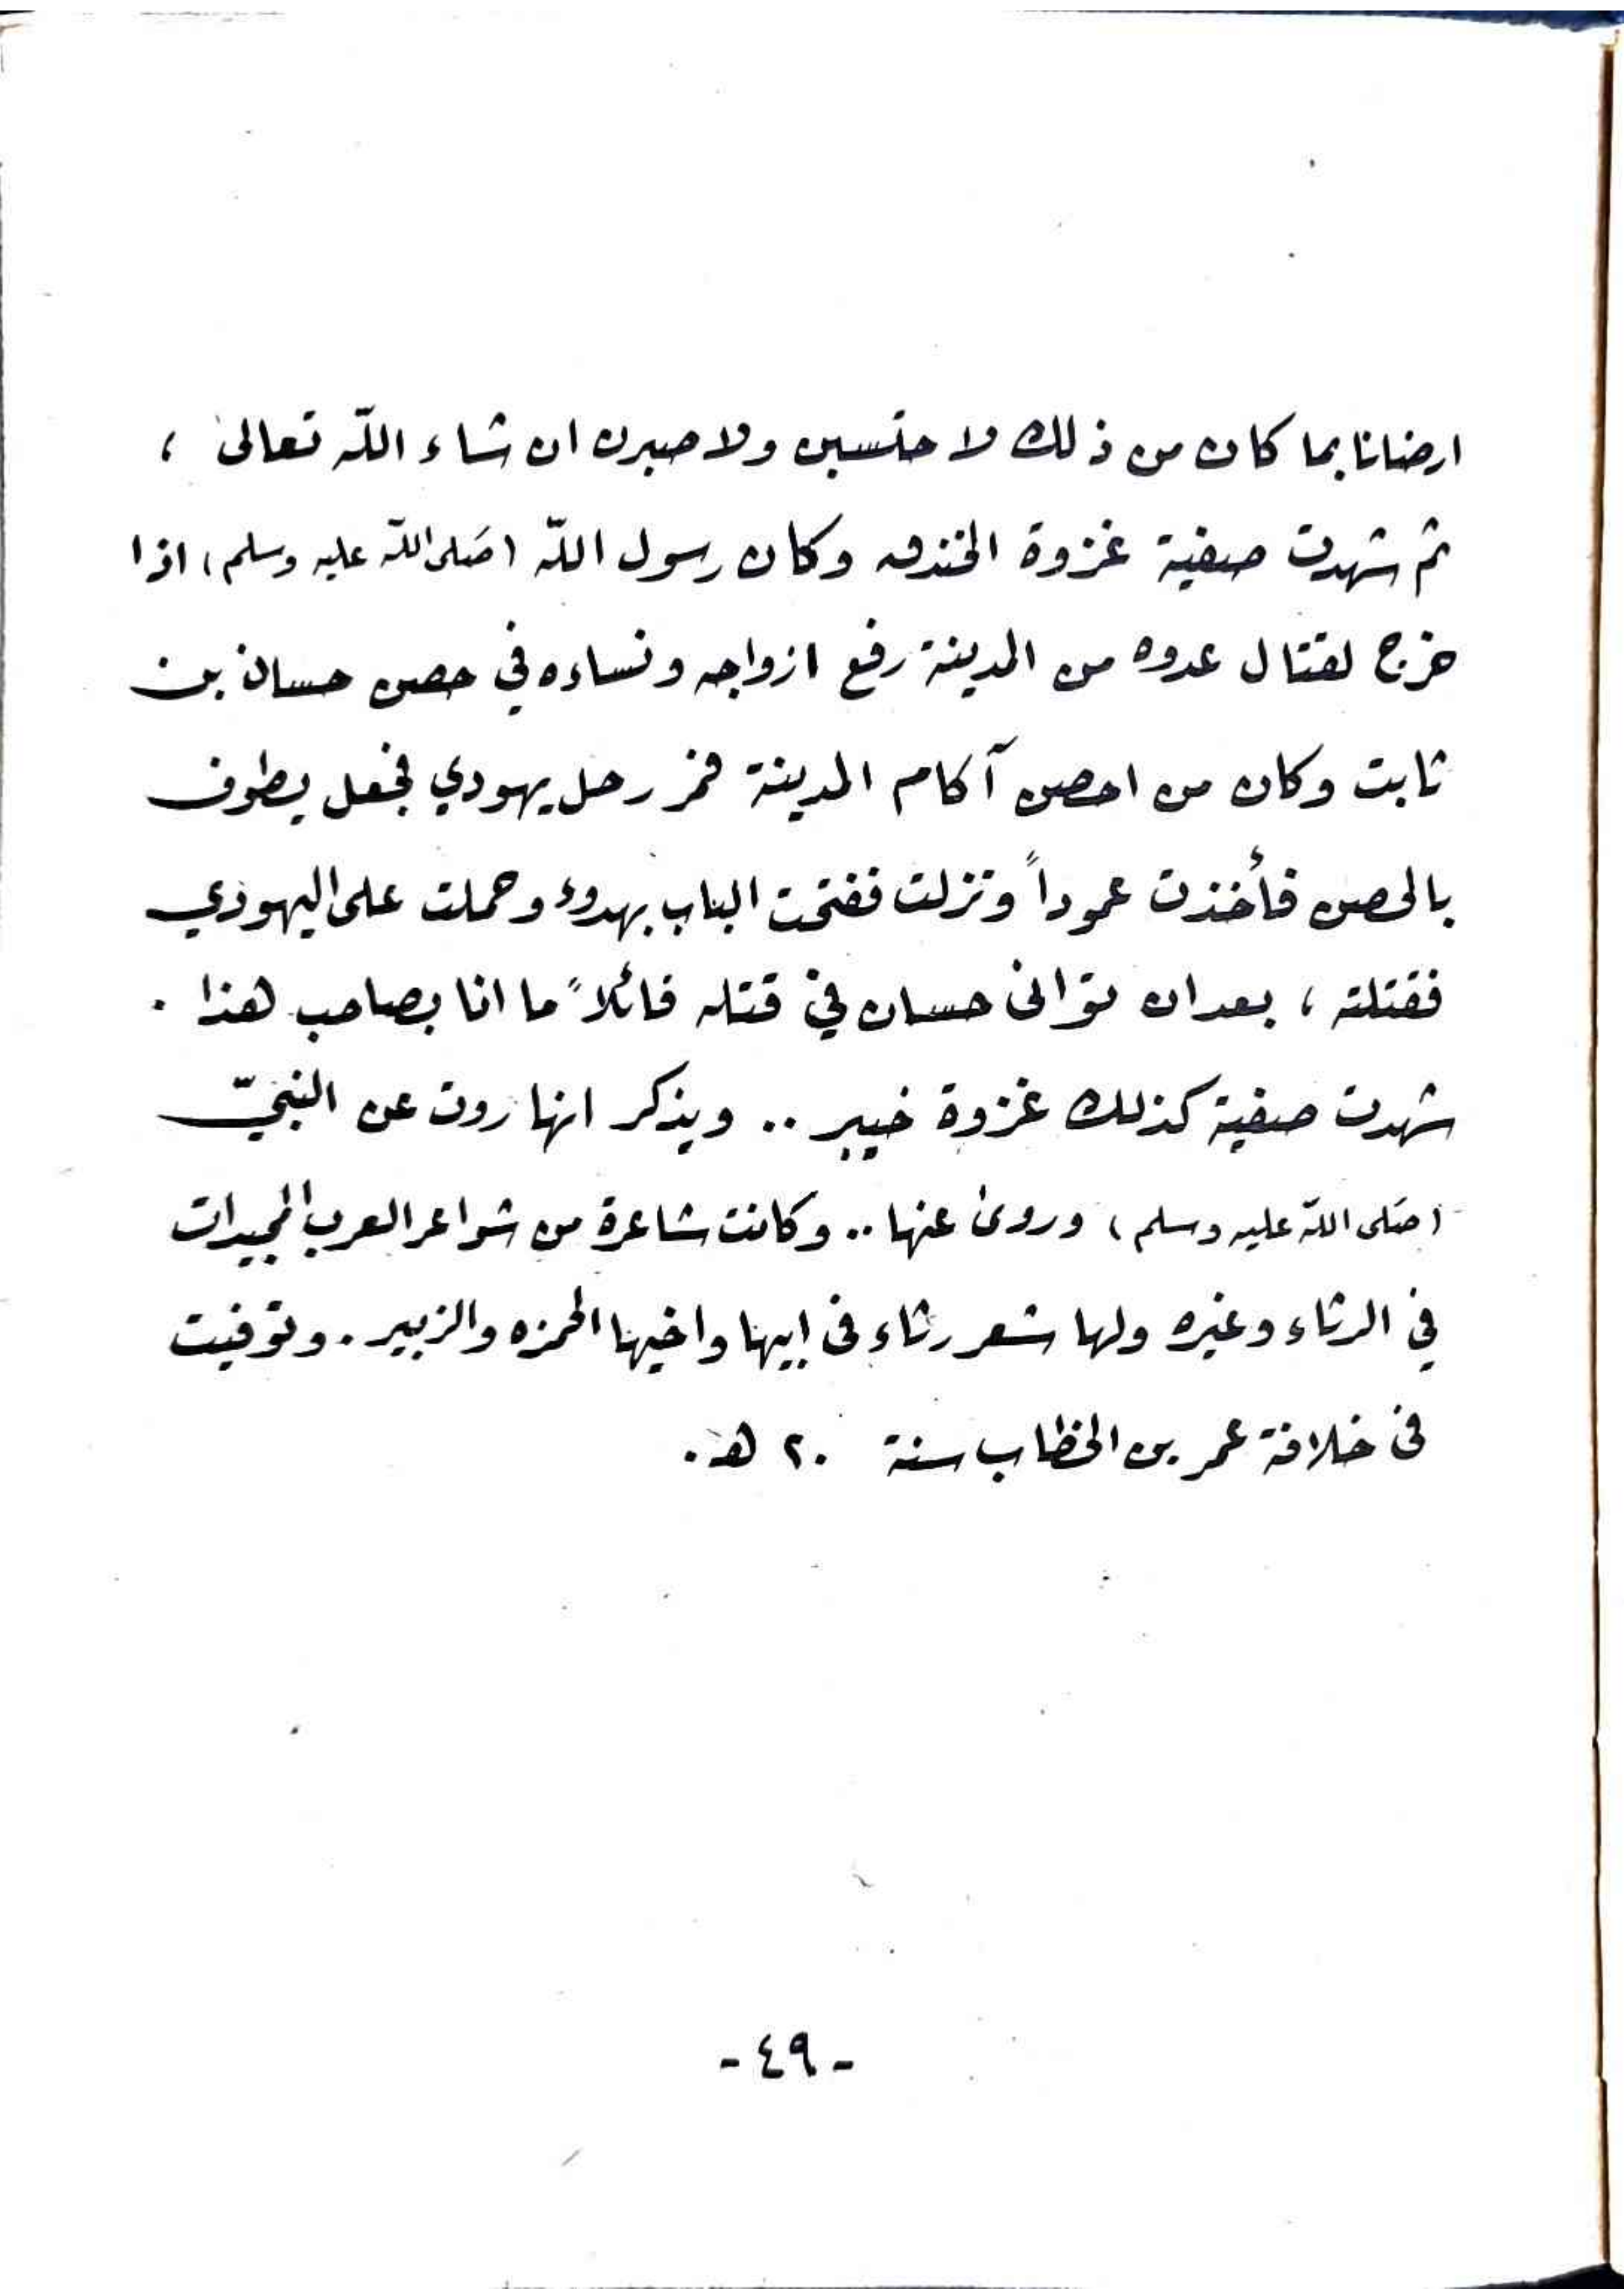 ارضانا بما كان من ذلك لا حتسبن ولا صبرن ان شاء اللّه تعالى ،
ثم شهدت صفية غزوة الخندق وكان رسول اللّه (صَلى اللّه عليه وسلم) اذا
خرج لقتال عدوه من المدينة رفع ازواجه ونساءه في حصن حسان بن
ثابت وكان من احصن آكام المدينة فمر رجل يهودي فجعل يطوف
بالحصن فأخذت عموداً ونزلت ففتحت الباب بهدوء وحملت على اليهودي
فقتلته ، بعد ان توانى حسان في قتله قائلاً ما انا بصاحب هذا .
شهدت صفية كذلك غزوة خيبر .. ويذكر انها روت عن النبيّ
(صَلى اللّه عليه وسلم) وروى عنها .. وكانت شاعرة من شواعر العرب المجيدات
في الرثاء وغيره ولها شعر رثاء في ابيها واخيها الحمزه والزبير . وتوفيت
في خلافة عمر بن الخطاب سنة ٢٠ هـ .
- ٤٩ -